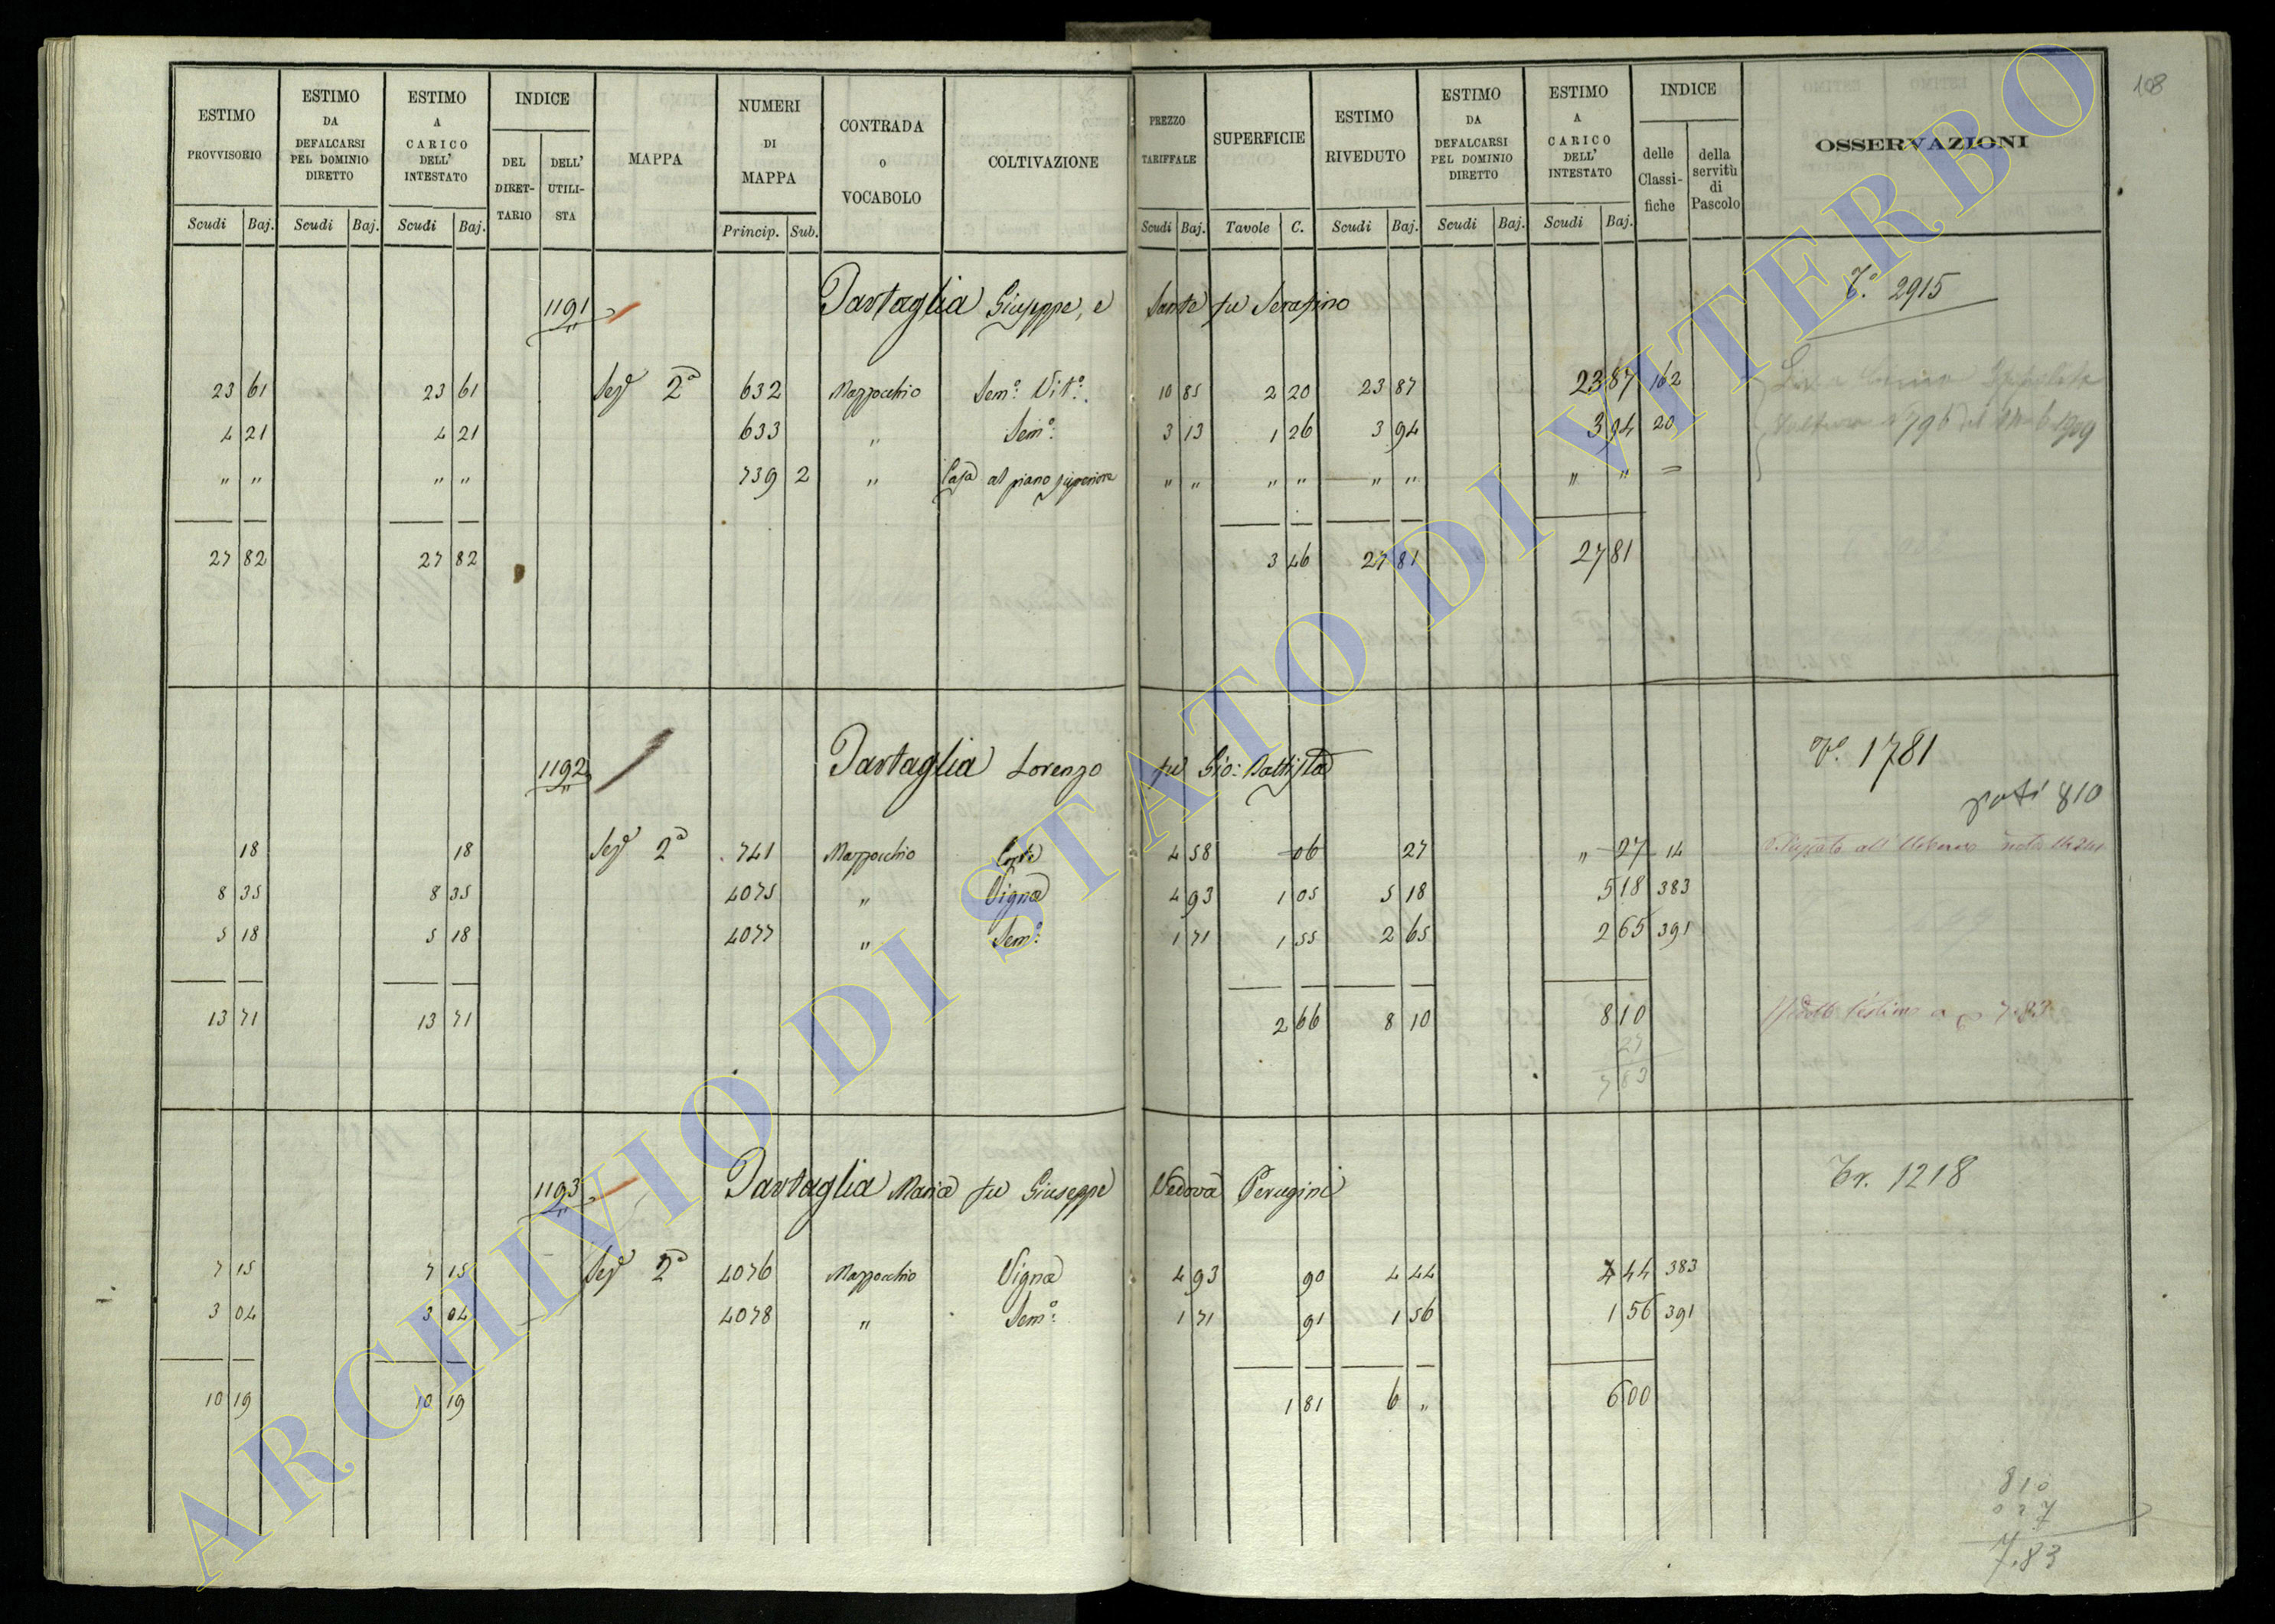 108
ESTIMO PROVVISORIO Scudi Baj.
ESTIMO DA DEFALCARSI PEL DOMINIO DIRETTO Scudi Baj.
ESTIMO A CARICO DELL' INTESTATO Scudi Baj.
INDICE DEL DIRET-TARIO DELL' UTILI-STA
MAPPA
NUMERI DI MAPPA Princip. Sub.
CONTRADA o VOCABOLO
COLTIVAZIONE
PREZZO TARIFFALE Scudi Baj.
SUPERFICIE Tavole C.
ESTIMO RIVEDUTO Scudi Baj.
ESTIMO DA DEFALCARSI PEL DOMINIO DIRETTO Scudi Baj.
ESTIMO A CARICO DELL' INTESTATO Scudi Baj.
INDICE delle Classi-fiche della servitù di Pascolo
OSSERVAZIONI
1191 Tartaglia Giuseppe, e Sante fu Serafino 2915
23 61 23 61 Sez.e 2a 632 Mazzocchio Sem.o Vit.o 10 85 2 20 23 87 23 87 162
4 21 4 21 633 " Sem.o 3 13 1 26 3 94 3 94 20
" " " " 739 2 " Casa al piano superiore " " " " " " " " =
27 82 27 82 3 46 27 81 27 81
1192 Tartaglia Lorenzo fu Gio: Battista 1781
810
18 18 Sez.e 2a 741 Mazzocchio Corte 4 58 06 27 " 27 14
8 35 8 35 4075 " Vigna 4 93 1 05 5 18 5 18 383
5 18 5 18 4077 " Sem.o 1 71 1 55 2 65 2 65 391
13 71 13 71 2 66 8 10 8 10
27
7 83
1193 Tartaglia Maria fu Giuseppe Vedova Perugini Tr. 1218
7 15 7 15 Sez.e 2a 4076 Mazzocchio Vigna 4 93 90 4 44 4 44 383
3 04 3 04 4078 " Sem.o 1 71 91 1 56 1 56 391
10 19 10 19 1 81 6 " 6 00
810
027
7.83
ARCHIVIO DI STATO DI VITERBO